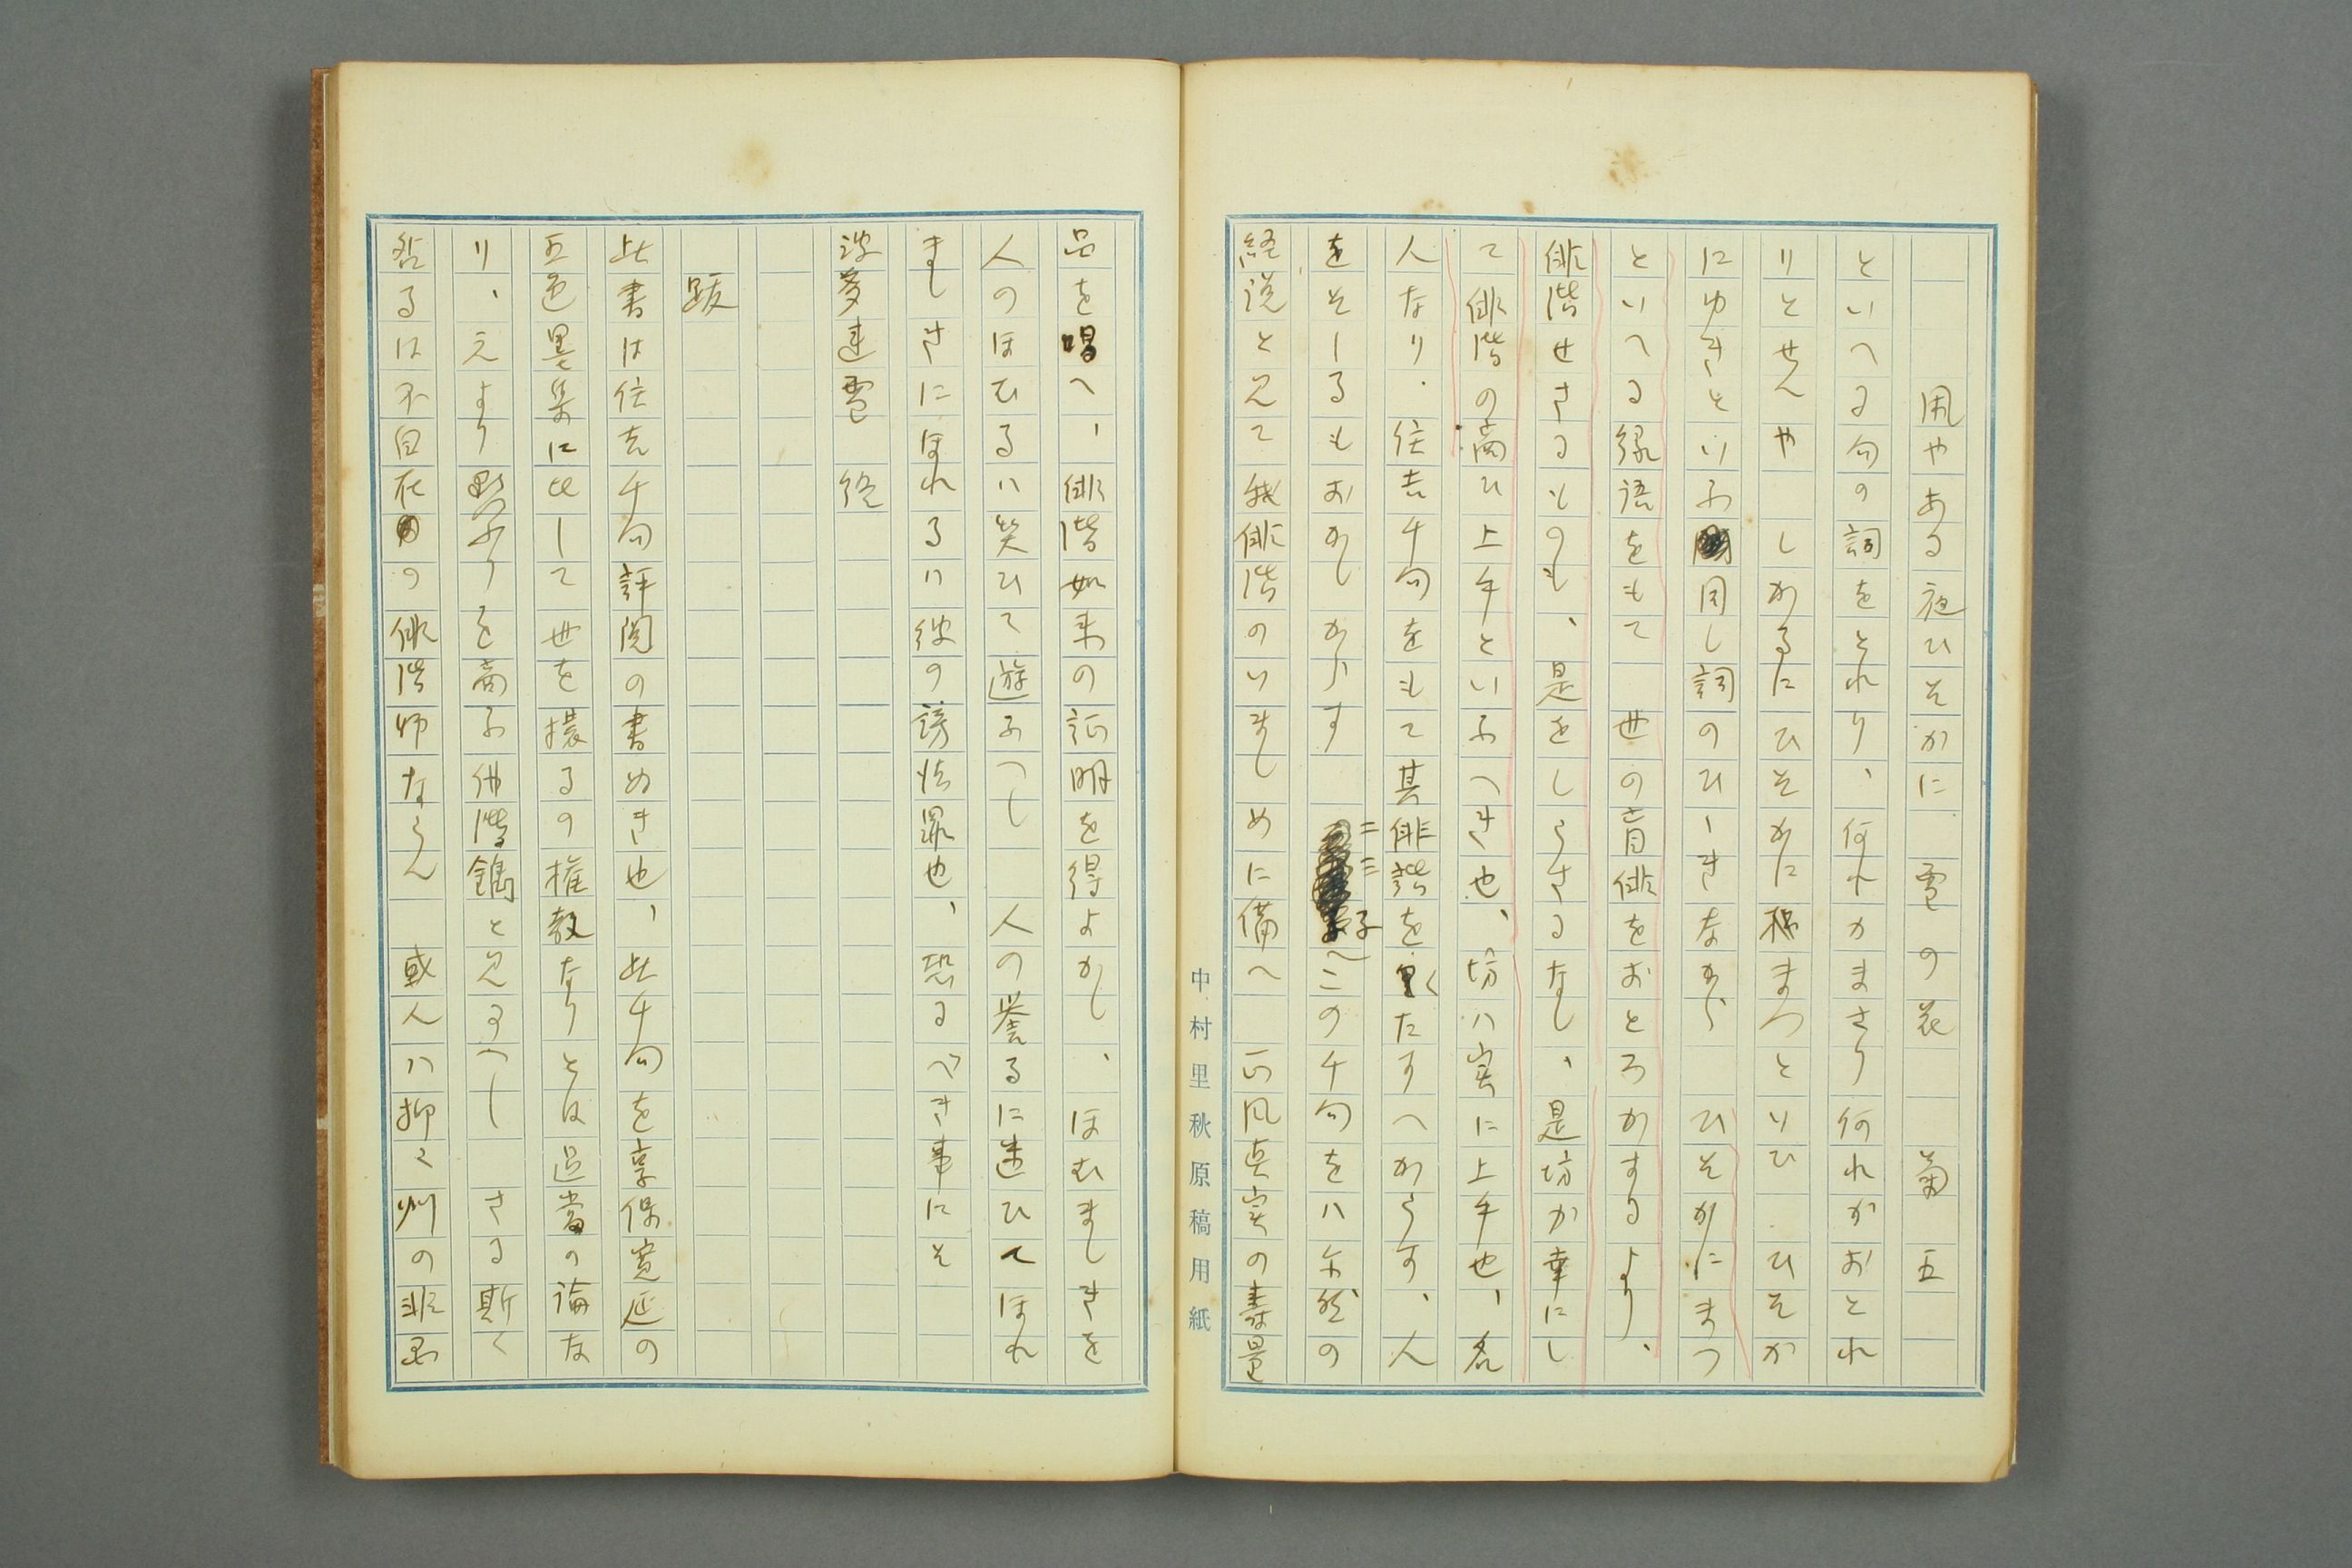 凩やある夜ひそかに　雪の花　菊五
といへる句の詞をとれり、何れかまさり何れかおとれ
りとせんや　しかるにひそかに梅まつといひ　ひそか
にゆきといふ同し詞のひゝきなから　ひそかにまつ
といへる縁語をもて　世の盲俳をおとろかするより、
俳諧せさるものも、是をしらさるなし、是坊か幸にし
て俳諧の商ひ上手といふへき也、坊ハ実に上手也、名
人なり．住吉千句をもて其俳諧をくたすへからす、人
をそしるもおかしからす　この千句をハ尓然の
経説と見て我俳諧のいましめに備へ　正風真実の寿量
中村里秋原稿用紙
品を唱へ、俳諧如来の証明を得よかし、ほむましきを
人のほむるハ笑ひて遊ふへし　人の誉るに迷ひてほれ
ましきにほれるハ彼の謗法罪也、恐るべき事にそ
　蓮雪　終
跋
此書は住吉千句評閲の書ぬき也、此千句を享保寛延の
五色墨集に比して世を擾るの権教なりとは過当の論な
り、元より点ふりを商ふ俳諧師と見るへし　さる斯く
名るは不自在の俳諧師ならん　或人ハ抑々州の非